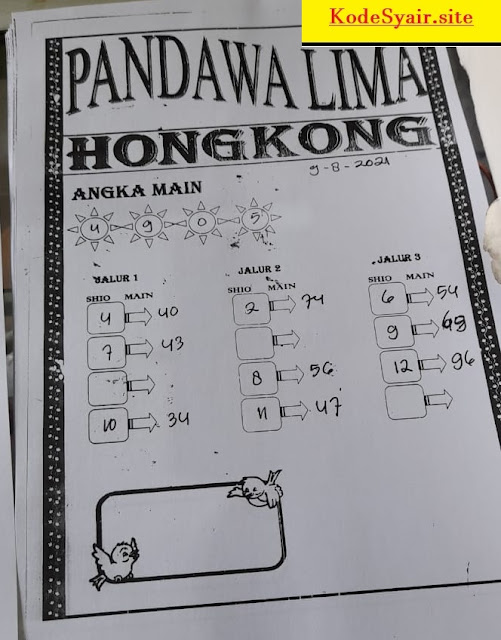 KodeSyair.site
PANDAWA LIMA
HONGKONG
9-8-2021
ANGKA MAIN
4 9 0 5
JALUR 1
SHIO MAIN
4 40
7 43
10 34
JALUR 2
SHIO MAIN
2 74
8 56
11 47
JALUR 3
SHIO MAIN
6 54
9
12 96